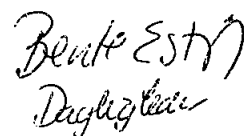 Bente Est
Dagligleder